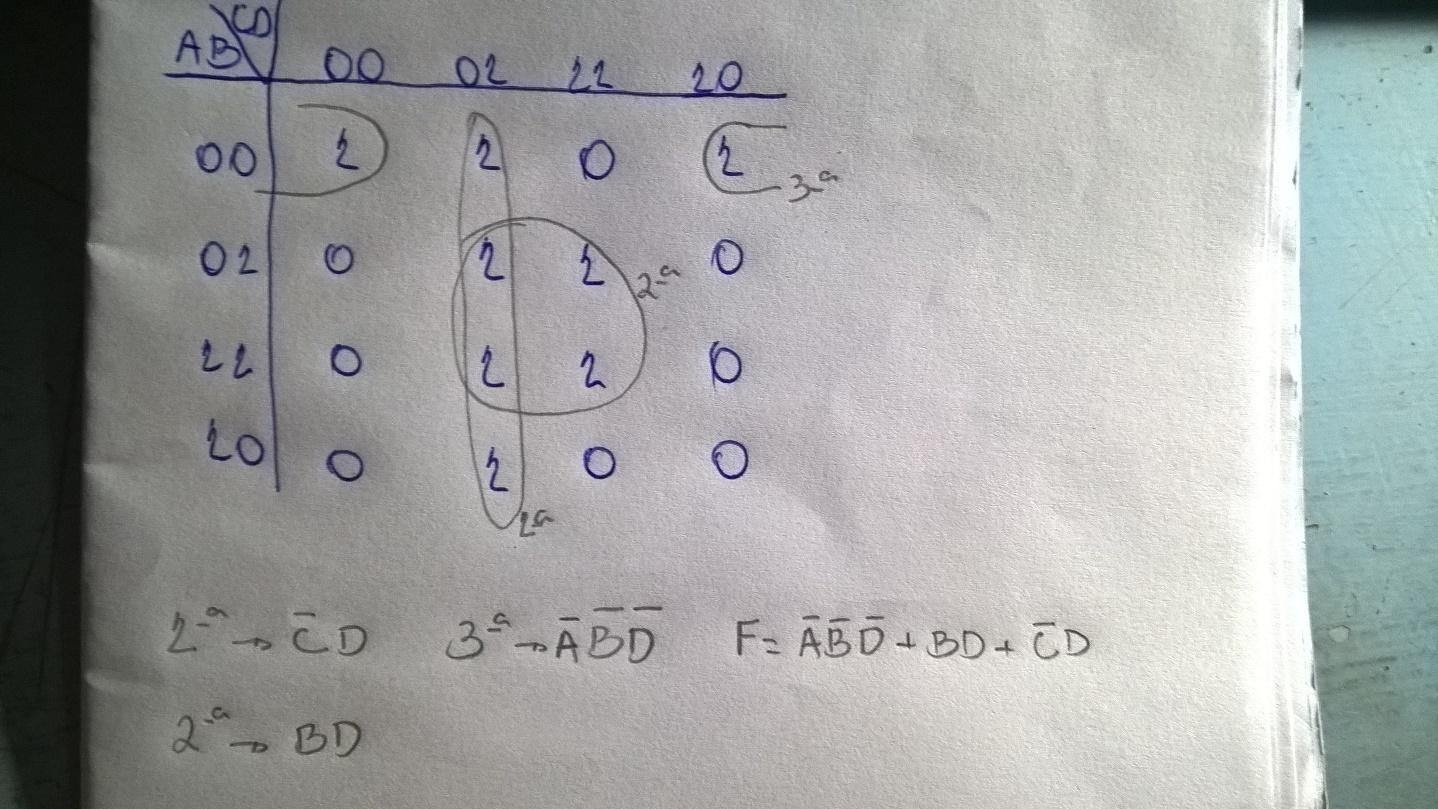 AB\CD 00 01 11 10
00 1 1 0 1 3-a
01 0 1 1 2-a 0
11 0 1 1 0
10 0 1 0 0
1a
1-a → C̄D 3-a → ĀB̄D̄ F= ĀB̄D̄ + BD + C̄D
2-a → BD